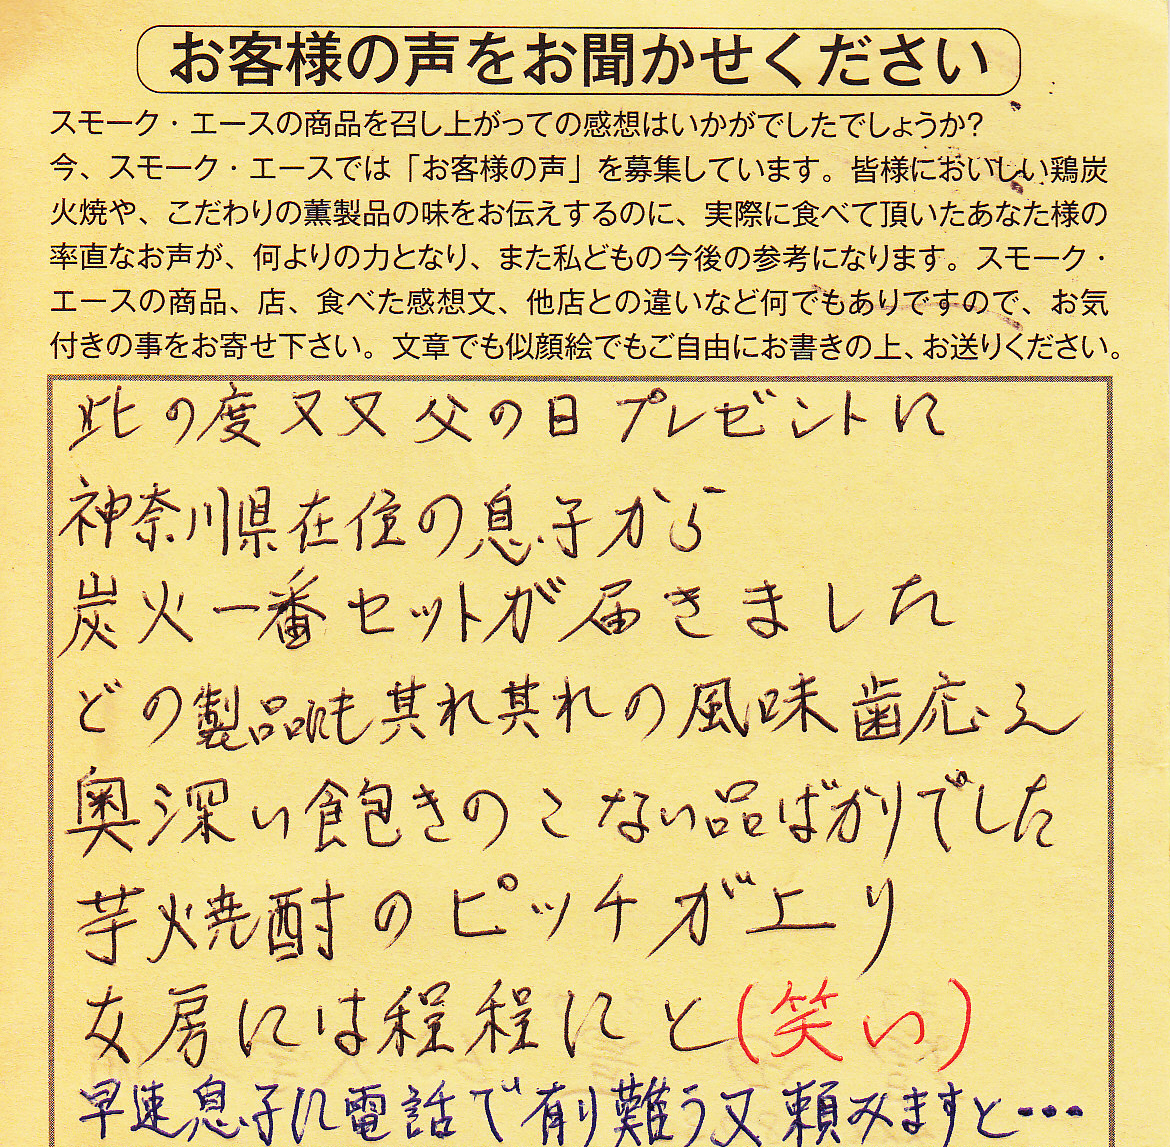 お客様の声をお聞かせください
スモーク・エースの商品を召し上がっての感想はいかがでしたでしょうか?
今、スモーク・エースでは「お客様の声」を募集しています。皆様においしい鶏炭
火焼や、こだわりの薫製品の味をお伝えするのに、実際に食べて頂いたあなた様の
率直なお声が、何よりの力となり、また私どもの今後の参考になります。スモーク・
エースの商品、店、食べた感想文、他店との違いなど何でもありですので、お気
付きの事をお寄せ下さい。文章でも似顔絵でもご自由にお書きの上、お送りください。
此の度又又父の日プレゼントに
神奈川県在位の息子から
炭火一番セットが届きました
どの製品れも其れ其れの風味歯応え
奥深い飽きのこない品ばかりでした
芋焼酎のピッチが上り
女房には程程にと(笑い)
早速息子に電話で有り難う又頼みますと・・・